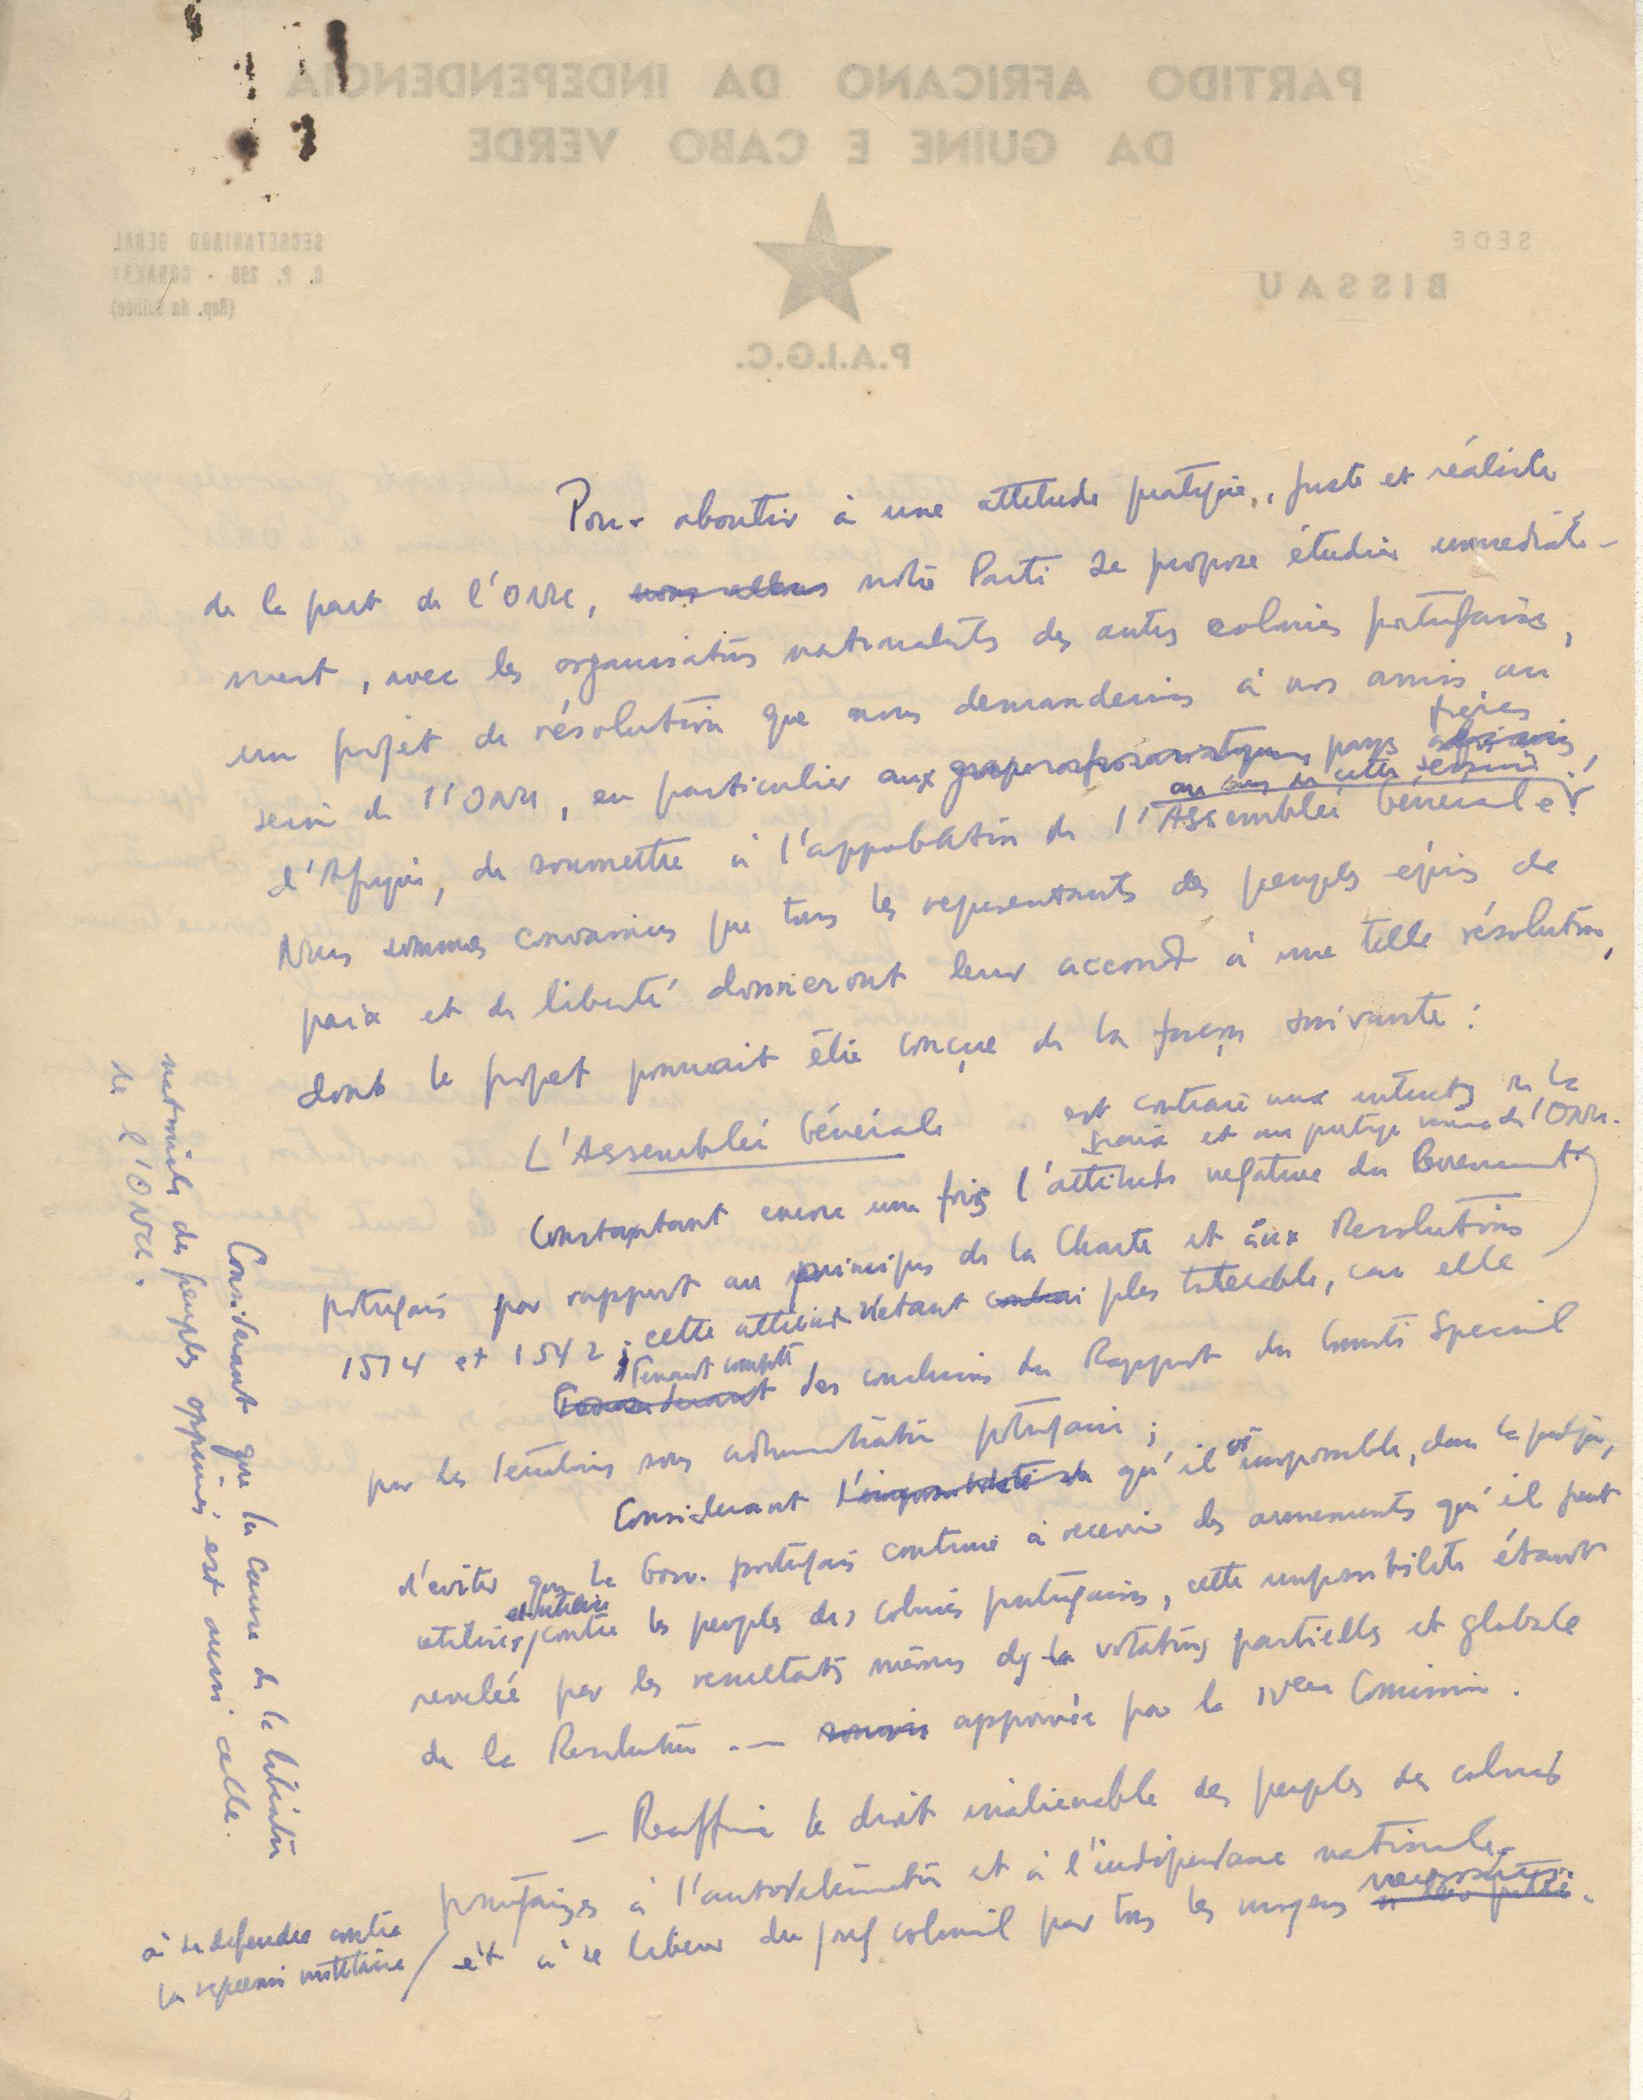 PARTIDO AFRICANO DA INDEPENDENCIA
DA GUINE E CABO VERDE
SEDE
BISSAU
SECRETARIADO GERAL
C. P. 298 - CONAKRY
(Rep. da Guinée)
P.A.I.G.C.
Pour aboutir à une attitude pratique, juste et réaliste
de la part de l'ONU, nous allons notre Parti se propose étudier immediate-
ment, avec les organisations nationalistes des autres colonies portugaises,
un projet de résolution que nous demanderions à nos amis au
sein de l'ONU, en particulier aux groupe afro-asiatique pays africains frères
d'Afrique, de soumettre à l'approbation de l'Assemblée Générale au cours de cette session.
Nous sommes convaincus que tous les representants des peuples épris de
paix et de liberté donneront leur accord à une telle résolution,
dont le projet pourrait être conçue de la façon suivante :
L'Assemblée Générale
est contraire aux interets de la
paix et au prestige même de l'ONU.
Constatant encore une fois l'attitude negative du Gouvernement
portugais par rapport au principes de la Charte et aux Resolutions
1514 et 1542 ; cette attitude n'etant plus tolerable, car elle
Tenant compte des conclusions du Rapport du Comité Special
par les territoires sous administration portugaise ;
Considerant l'impossibilité de qu'il est impossible, dans la pratique,
d'eviter que le Gouv. portugais continue à recevoir des armements qu'il peut
utiliser et utilise contre les peuples des colonies portugaises, cette impossibilité étant
revelée par les resultats mêmes des votations partielles et globale
de la Resolution .— approuvée par la IVème Comission.
— Reaffirme le droit inalienable des peuples des colonies
portugaises à l'autodetermination et à l'independance nationale
à se defendre contre
la repression militaire
et à se liberer du joug colonial par tous les moyens necessaires.
Considerant que la cause de la liberation
nationale des peuples opprimés est aussi celle
de l'ONU.